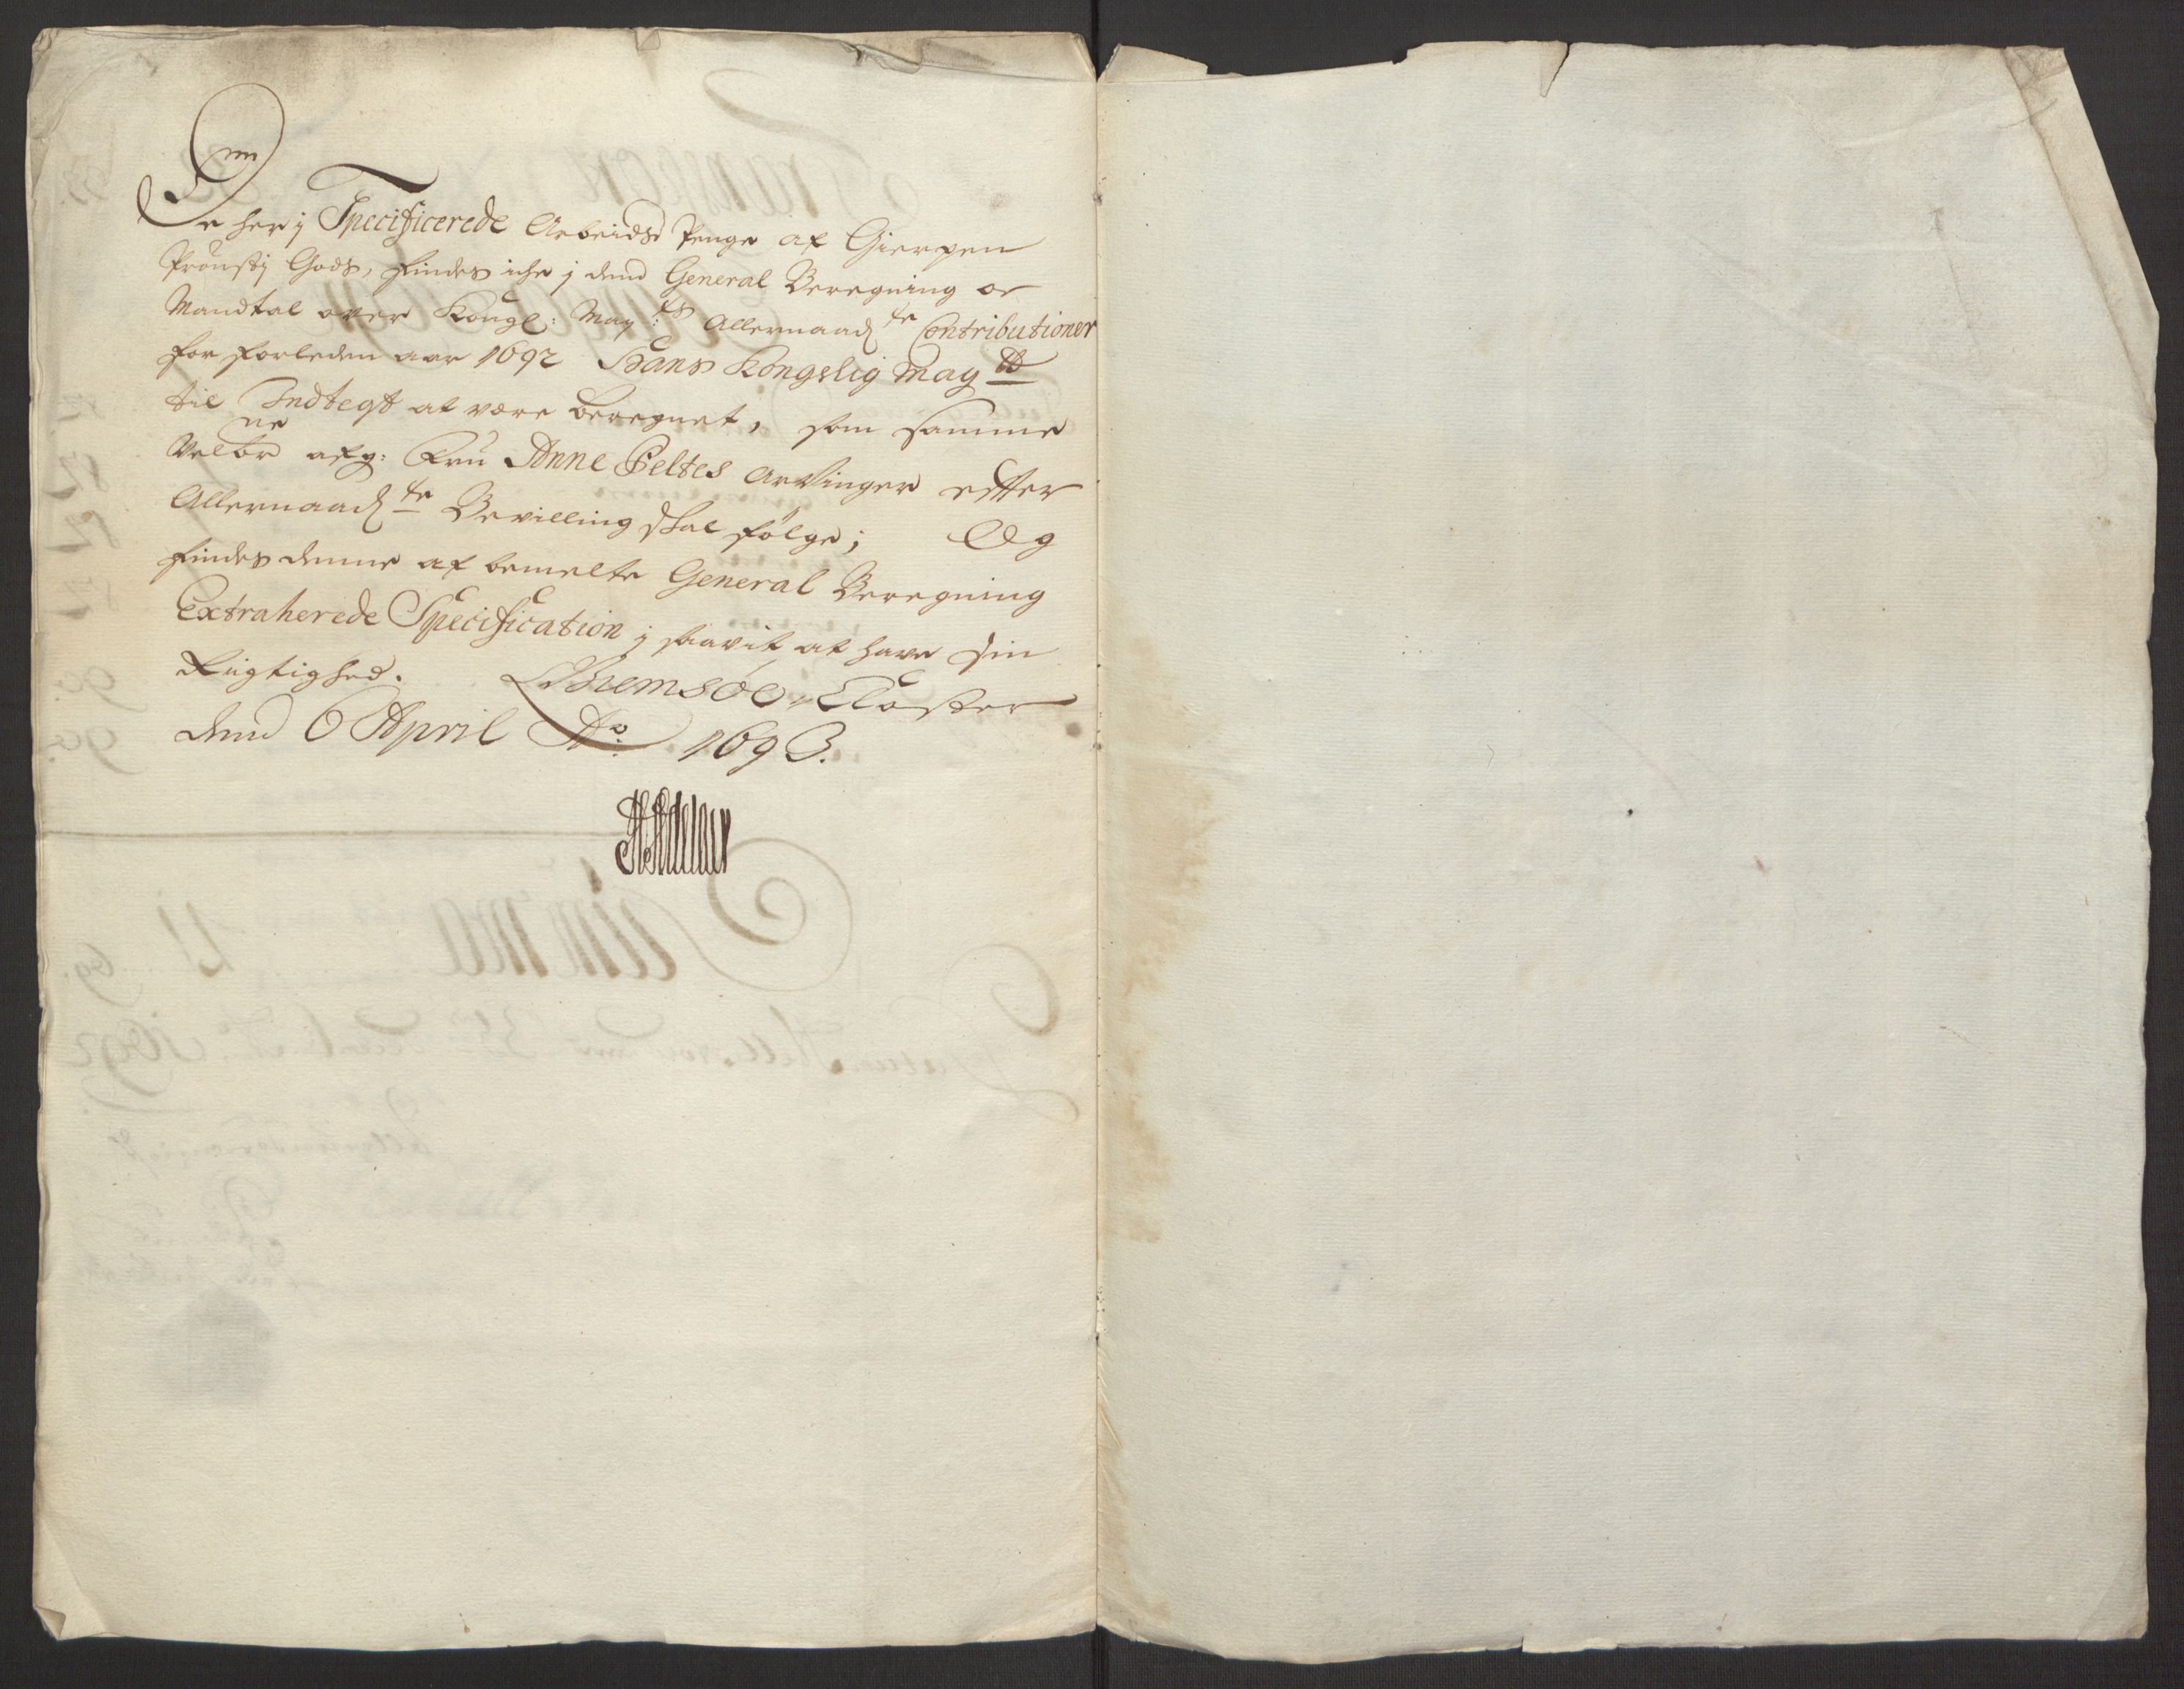 De her j Specificerede Arbeids Penge af Gierpen
Proustj Gods, findes iche j dend General Beregning or
Mandtal over Kongl: May:ts Allernaad:te Contributioner
for forleden aar 1692 Hans Kongelig May:tt
til Indtegt at være beregnet, som samme
Velbne afg: Fru Anne Peltes Arvinger efter
Allernaad:te Bevilling skal følge; Og
findes denne af bemelte General Beregning
Extraherede Specification j saavit at have sin
Rigtighed. Giemsøe Closter
dend 6 April Ao: 1693.
HAdelaer